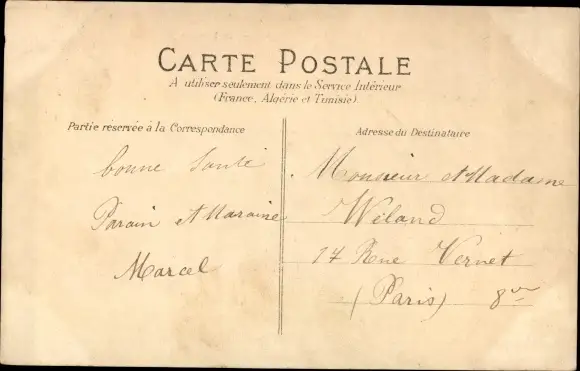 CARTE POSTALE
A utiliser seulement dans le Service Intérieur
(France, Algérie et Tunisie)
Partie réservée à la Correspondance
bonne Santé
Parain et Maraine
Marcel
Adresse du Destinataire
Monsieur et Madame
Wiland
17 Rue Vernet
(Paris) 8e